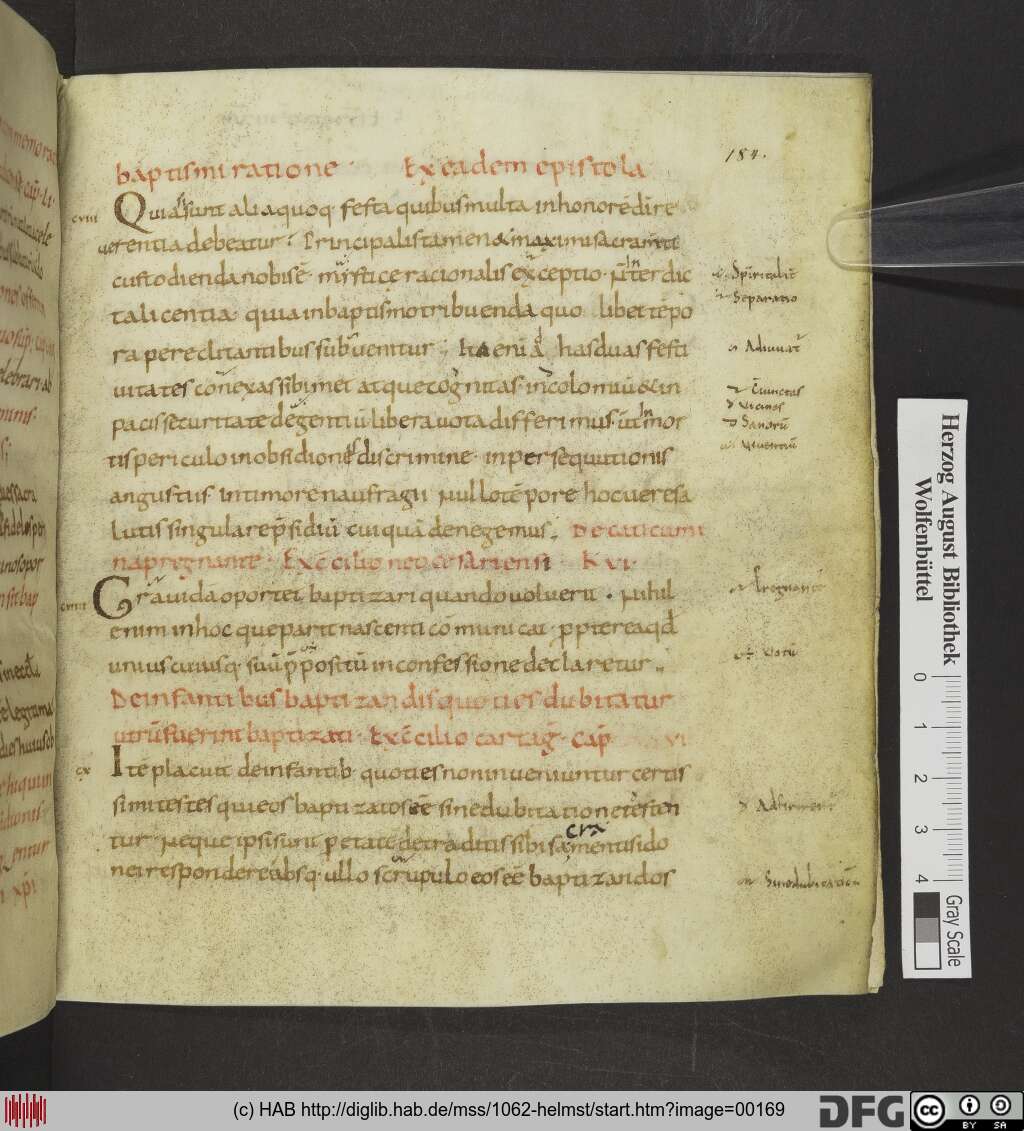 184.
baptismi ratione · Ex eadem epistola
cviii Quia sunt alia quoq; festa quibus multa in honorē dī re
uerentia debeatur. Principalis tamen & maximi sacram̄ti
custodienda nobis ē mystice racionalis exceptio. N̄ interdic
ta licentia quia in baptismo tribuenda quo libet tēpo
re periclitantibus subuenitur. Ita enī ad has duas festi
uitates conexas sibimet atque cognitas. incolomiū & in
pacis securitate degentiū libera uota differimus. ut in mor
tis periculo in obsidionis discrimine in persequutionis
angustiis in timore naufragii nullo tēpore hoc uere sa
lutis singulare p̄sidiū cuiquā denegemus. De caticumi
na pregnante. Ex c̄cilio neocesariensi K vi
cviiii Grauidā oportet baptizari quando uoluerit. Nihil
enim in hoc que parit nascenti communicat. propterea qd
uniuscuiusq; suū p̄positū in confessione declaretur.
De infantibus baptizandis quoties dubitatur
utrū fuerint baptizati. Ex c̄cilio cartag̅. cap̄ vi
cx Itē placuit de infantib; quoties non inueniuntur certis
simi testes qui eos baptizatos eē sine dubitatione testen
tur. Neque ipsi sunt p etatē de traditis sibi sacramentis ido
nei respondere absq; ullo scrupulo eos eē baptizandos
Spiritalit̄
Separatio
Adiuuat̄
Viuentiū
Sanorū
Pregnant̄
Votū
Adfirment̄
Sine dubitatiōn
Herzog August Bibliothek
Wolfenbüttel
0 1 2 3 4
Gray Scale
(c) HAB http://diglib.hab.de/mss/1062-helmst/start.htm?image=00169
DFG
cc BY SA